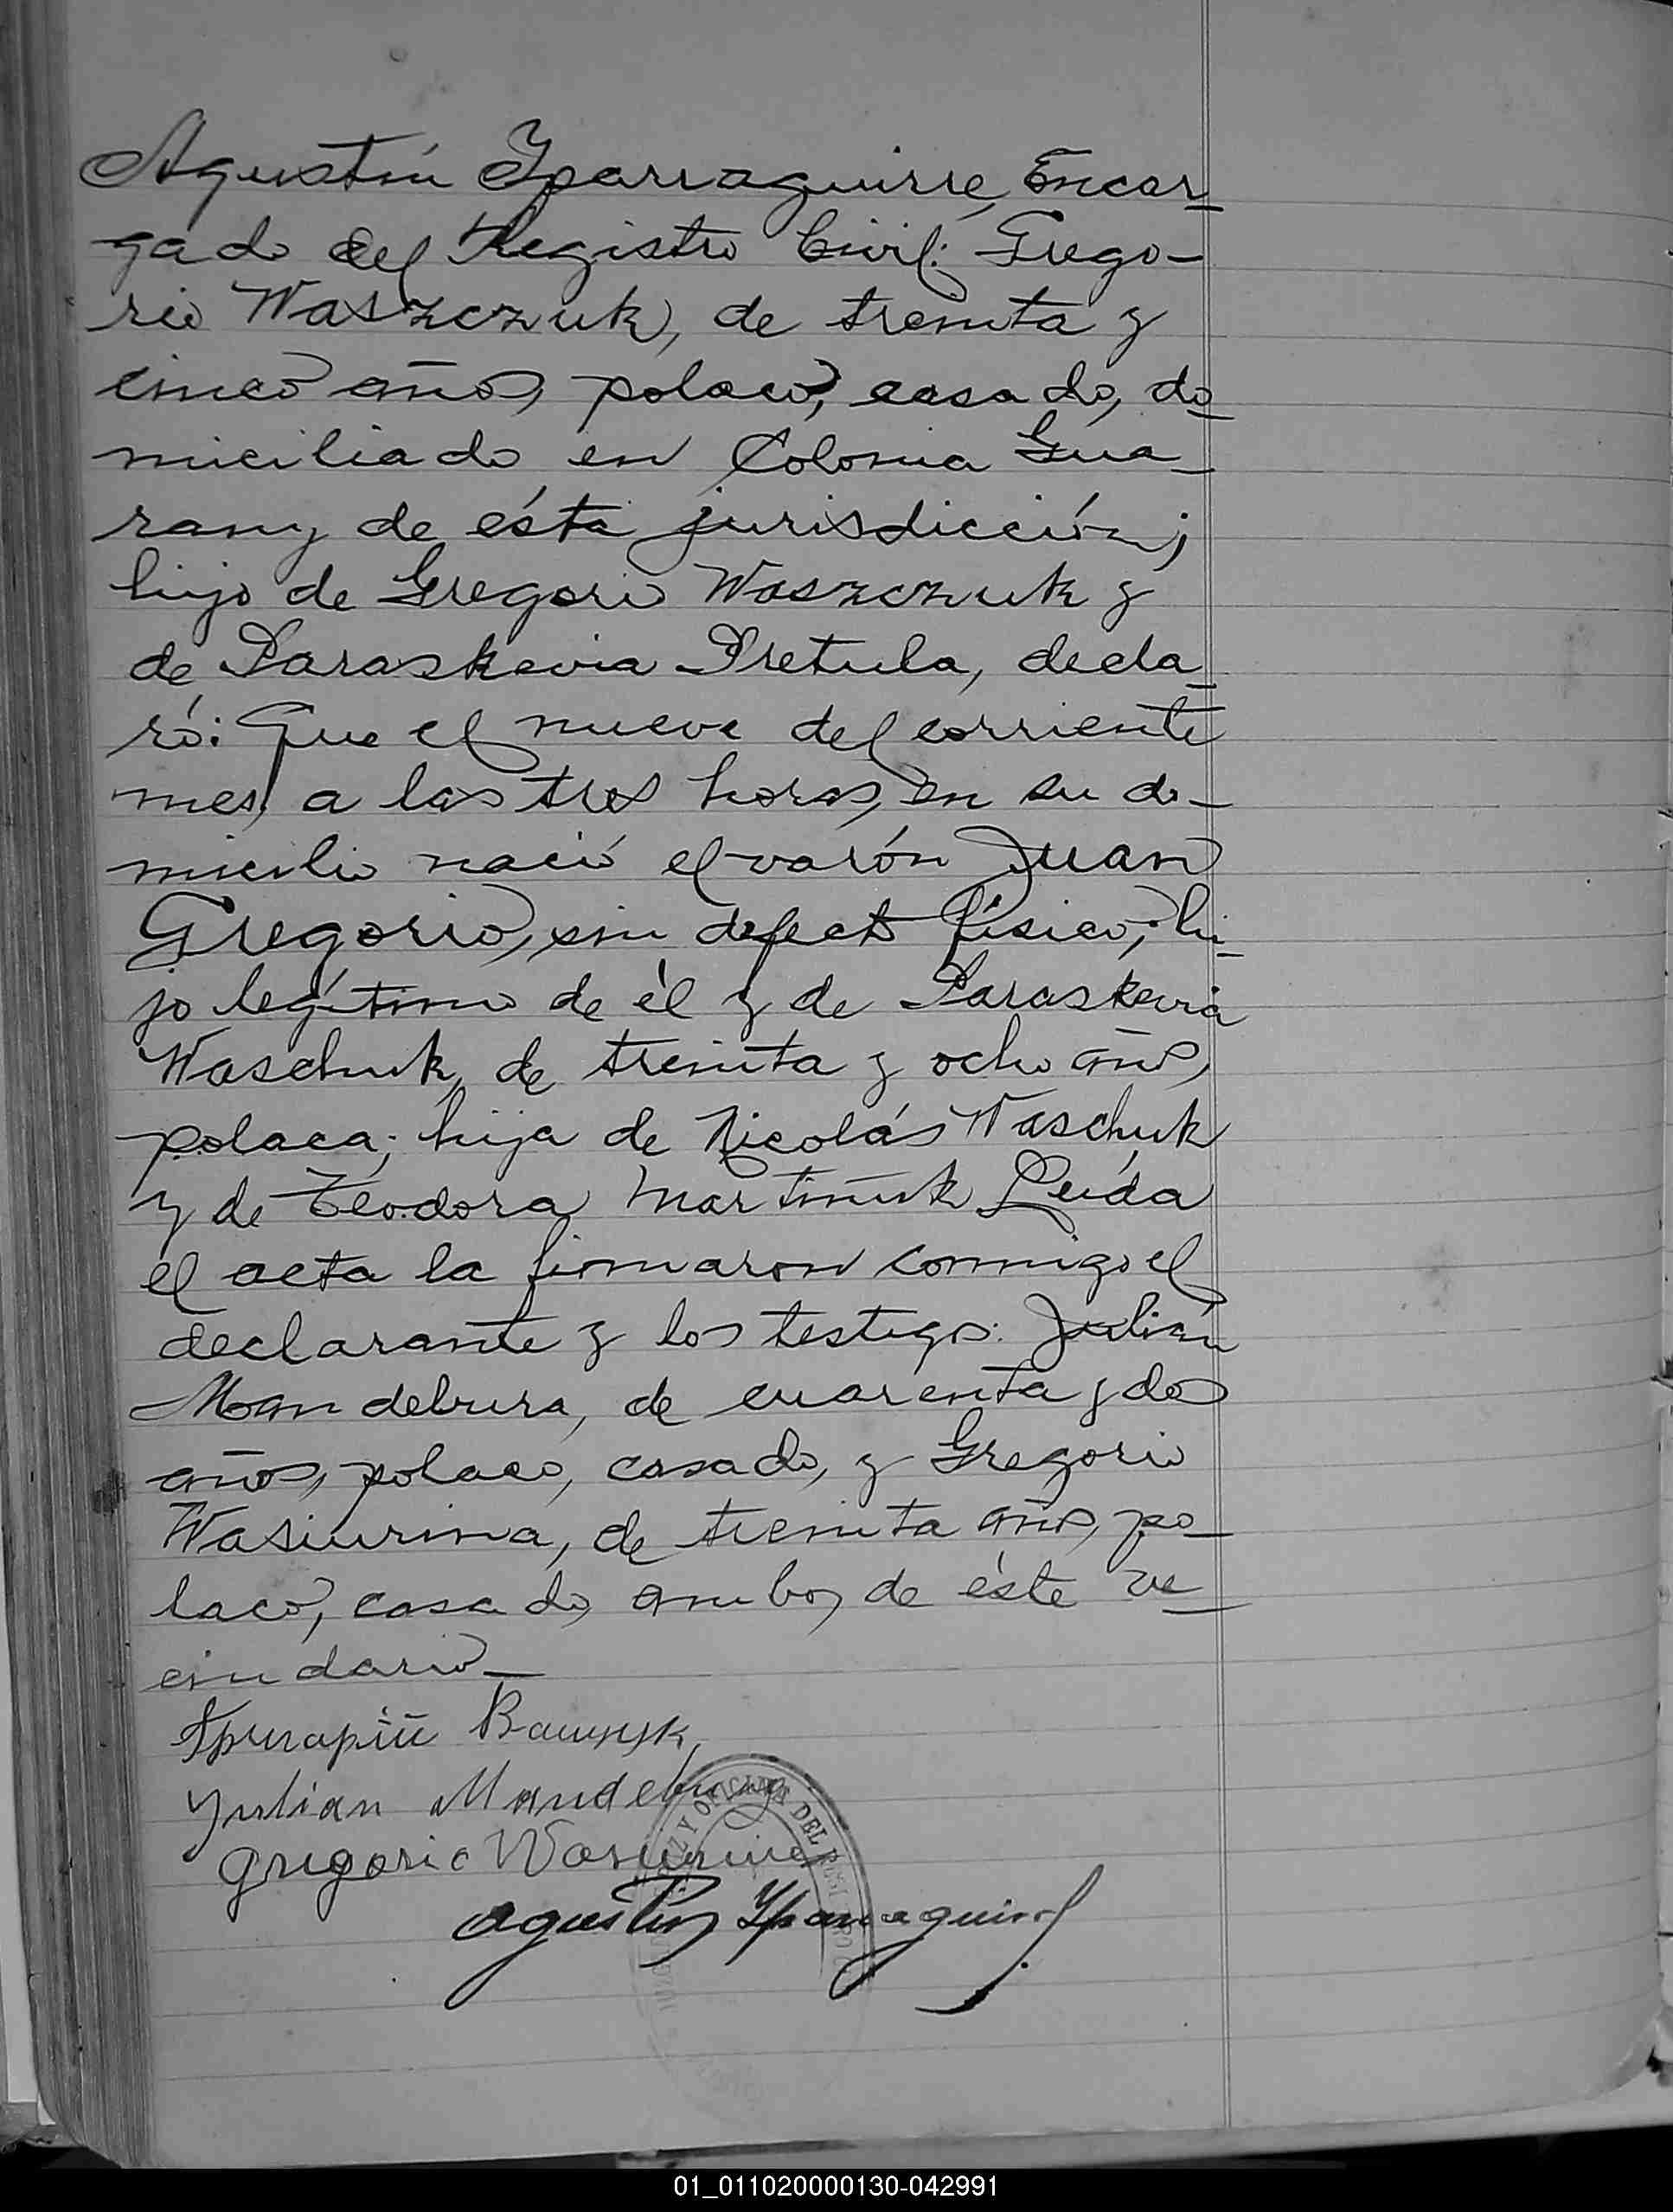 Agustín Yparraguirre, Encar-
gado del Registro Civil: Grego-
rio Waszczuk, de treinta y
cinco años, polaco, casado, do-
miciliado en Colonia Gua-
rany de ésta jurisdicción;
hijo de Gregorio Waszczuk y
de Paraskevia Pretula, decla-
ró: Que el nueve del corriente
mes, a las tres horas, en su do-
micilio nació el varón Juan
Gregorio, sin defecto físico; hi-
jo legítimo de él y de Paraskevia
Waschuk, de treinta y ocho años,
polaca; hija de Nicolás Waschuk
y de Teodora Martiniuk Leída
el acta la firmaron conmigo el
declarante y los testigos: Julián
Mandebura, de cuarenta y dos
años, polaco, casado, y Gregorio
Wasiurina, de treinta años, po-
laco, casado, ambos de éste ve-
cindario—
Julian Mandebura
Gregorio Wasiurina
Agustín Yparraguirre
DEL REGISTRO
01_011020000130-042991